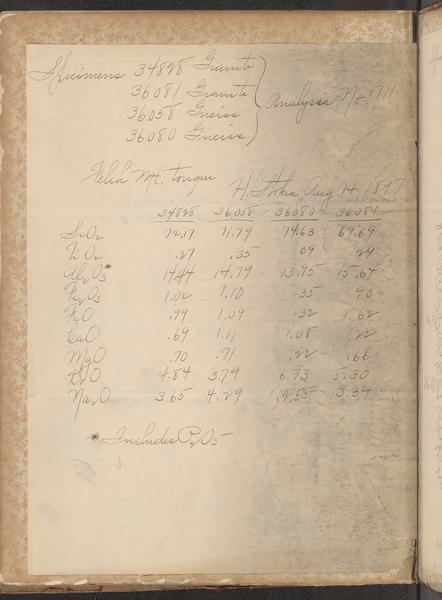 Specimens 34828 Granite
36081 Granite
36058 Gneiss
36080 Gneiss
Analysis No. 1711
Felch Mt. tongue
H. Stokes, Aug 14, 1897
34828 36058 36080 36081
SiO2 72.17 71.79 74.63 69.69
TiO2 .27 .35 09 .29
Al2O3* 14.44 14.79 13.95 15.64
Fe2O3 1.02 1.10 .35 90
FeO .99 1.09 .32 1.62
CaO .69 1.11 1.08 1.22
MgO .70 .71 .22 .66
K2O 4.84 3.79 6.73 5.30
Na2O 3.65 4.29 2.55 3.37
* Includes P2O5